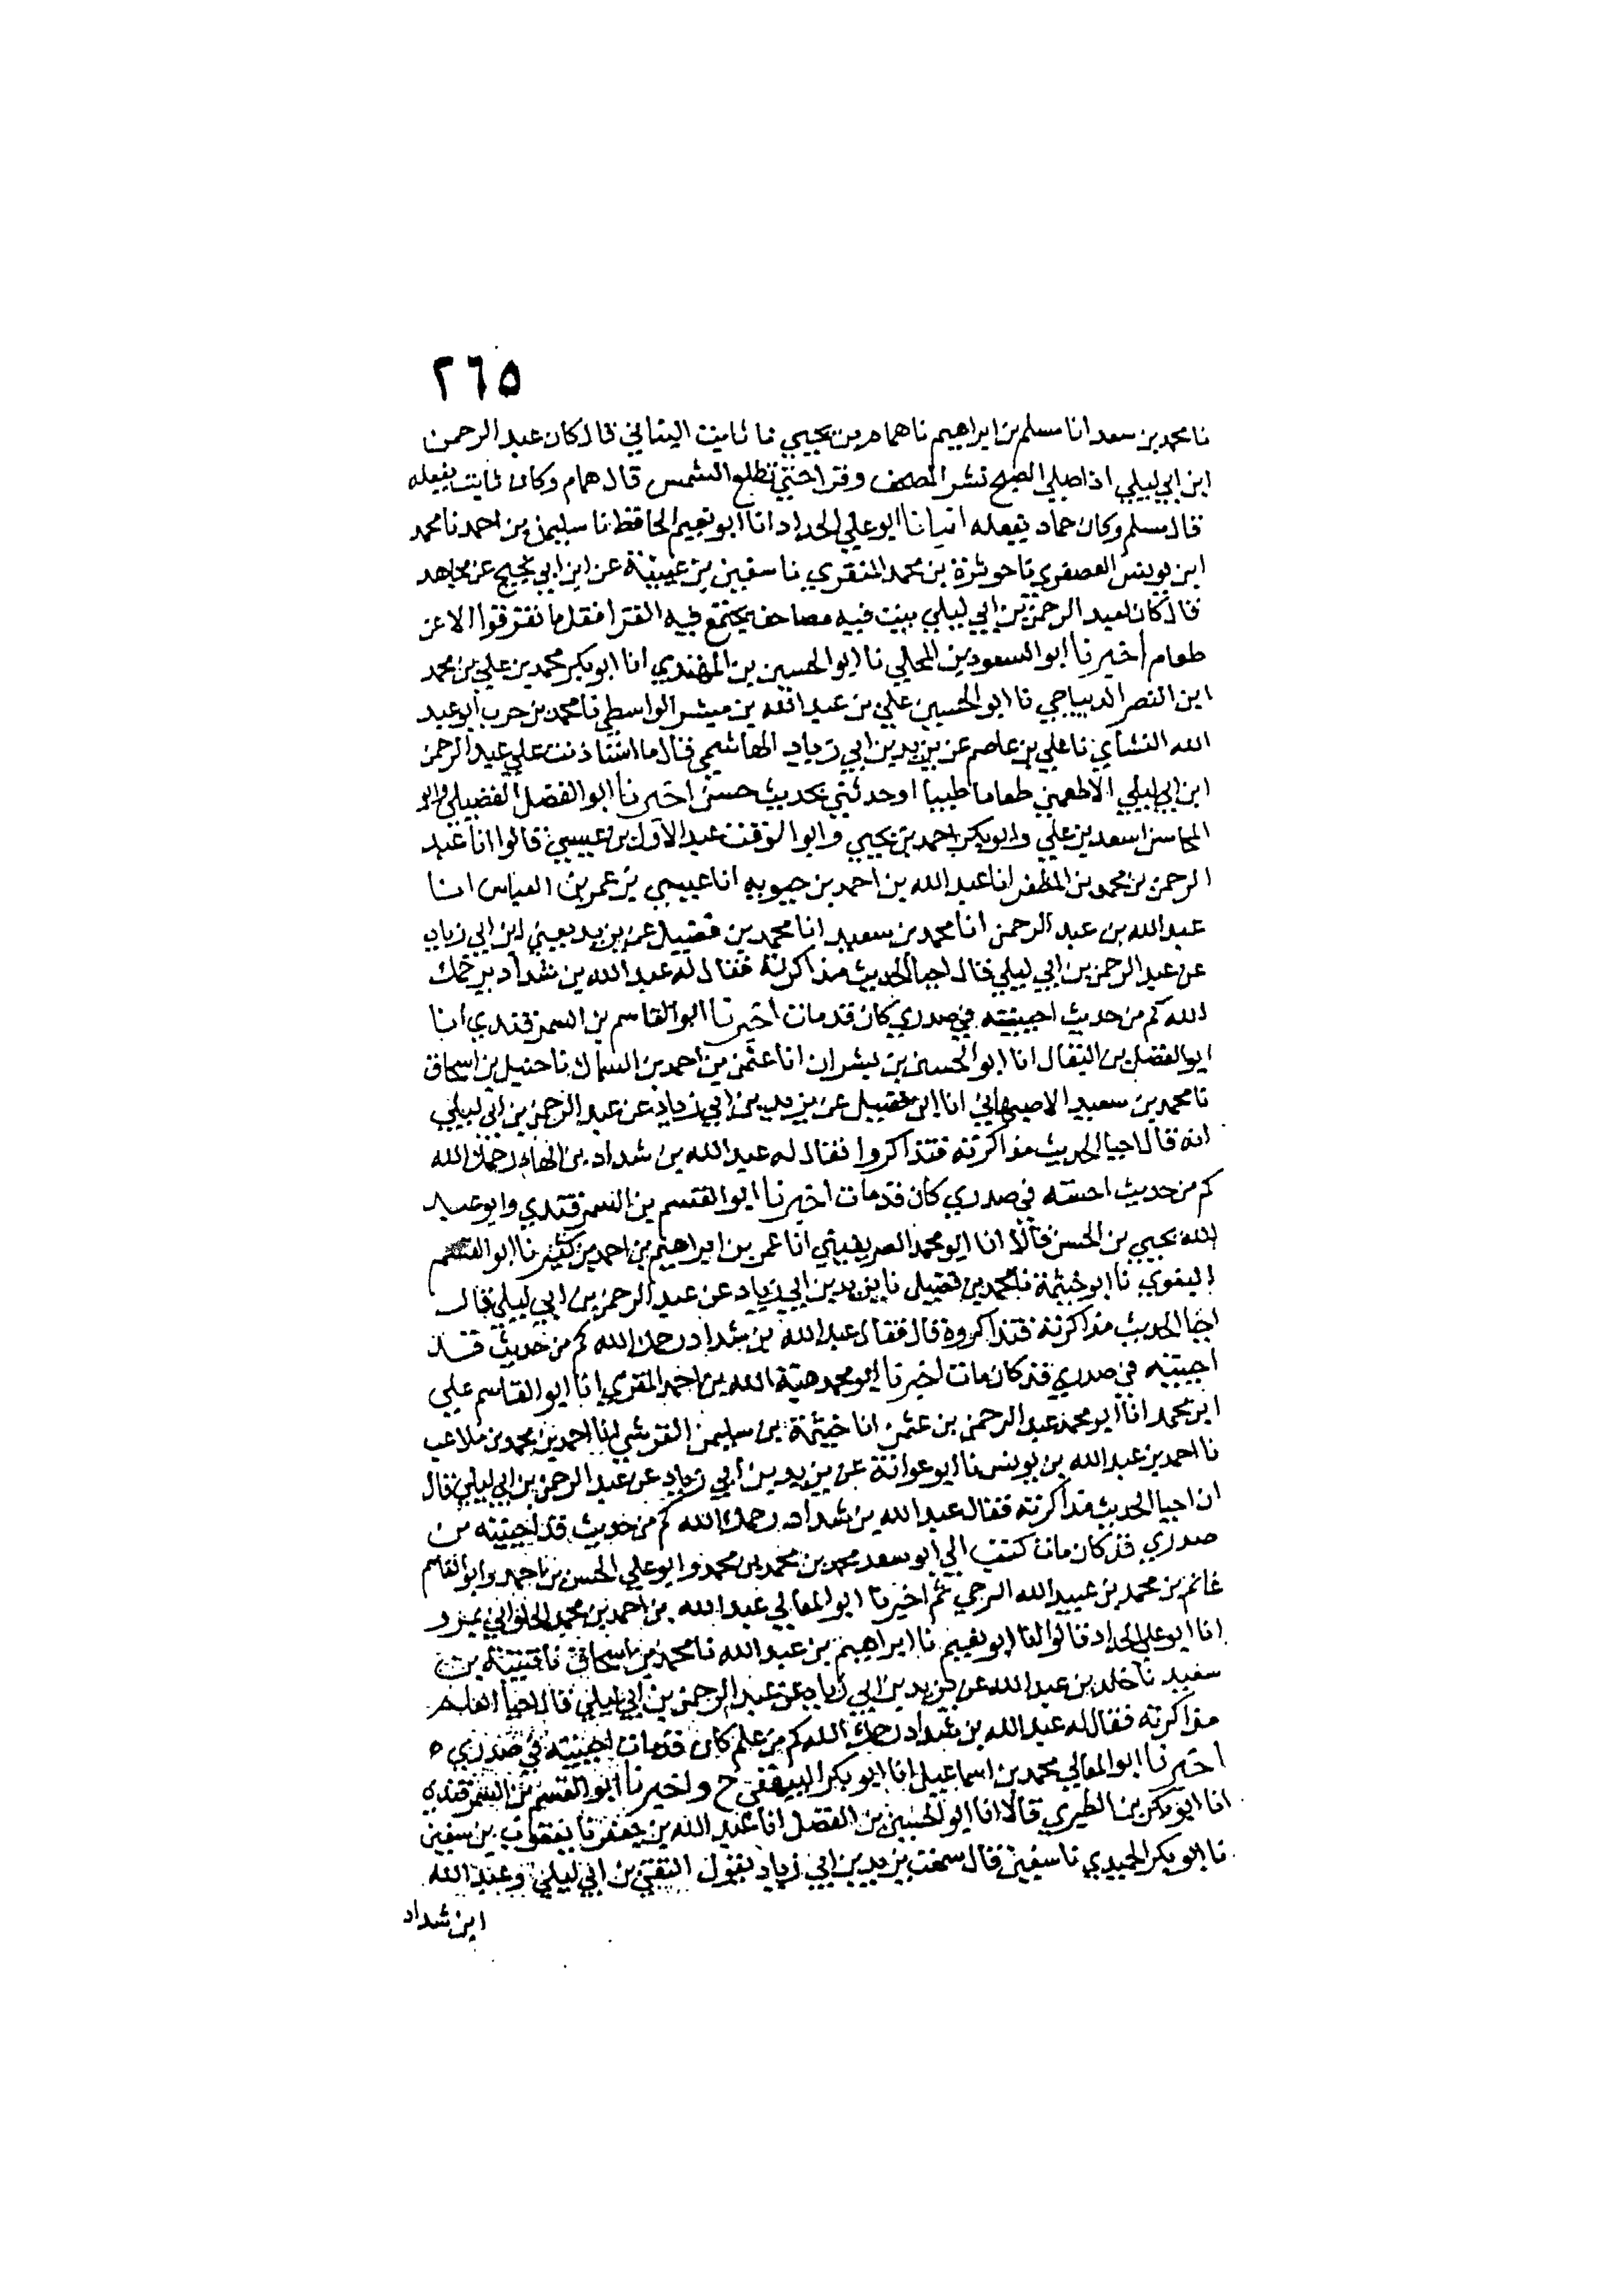 ٢٦٥
نا محمد بن سعد انا مسلم بن ابراهيم نا همام بن يحيي نا ثابت البناني قال كان عبد الرحمن
ابن ابي ليلي اذا صلي الصبح نشر المصحف وقرا حتي تطلع الشمس قال همام وكان ثابت يفعله
قال مسلم وكان حماد يفعله انبانا ابو علي الحداد انا ابو نعيم الحافظ نا سليمن بن احمد نا محمد
ابن يونس العصفري نا حوثرة بن محمد المنقري نا سفين بن عيينة عن ابن ابي نجيح عن مجاهد
قال كان لعبد الرحمن بن ابي ليلي بيت فيه مصاحف يجتمع فيه القرا فقل ما تفرقوا الا عن
طعام اخبرنا ابو السعود بن المجلي نا ابو الحسين بن المهتدي انا ابو بكر محمد بن علي بن محمد
ابن النصر الديباجي نا ابو الحسين علي بن عبد الله بن مبشر الواسطي نا محمد بن حرب ابو عبد
الله النشاي نا علي بن عاصم عن يزيد بن ابي زياد الهاشمي قال ما استاذنت علي عبد الرحمن
ابن ابي ليلي الا اطعمني طعاما طيبا او حدثني بحديث حسن اخبرنا ابو الفضل الفضيلي وابو
المحاسن اسعد بن علي وابو بكر احمد بن يحيي وابو الوقت عبد الاول بن عيسي قالوا انا عبد
الرحمن بن محمد بن المظفر انا عبد الله بن احمد بن حمويه انا عيسي بن عمر بن العباس انا
عبد الله بن عبد الرحمن انا محمد بن سعيد انا محمد بن فضيل عن يزيد يعني ابن ابي زياد
عن عبد الرحمن بن ابي ليلي قال احيا الحديث مذاكرته فقال له عبد الله بن شداد يرحمك
الله كم من حديث احييته في صدري كان قد مات اخبرنا ابو القاسم بن السمرقندي انا
ابو الفضل بن البقال انا ابو الحسين بن بشران انا عثمن بن احمد بن السماك نا حنبل بن اسحاق
نا محمد بن سعيد الاصبهاني انا ابن فضيل عن يزيد بن ابي زياد عن عبد الرحمن بن ابي ليلي
انه قال احيا الحديث مذاكرته فتذاكروا فقال له عبد الله بن شداد بن الهاد رحمك الله
كم من حديث احييته في صدري كان قد مات اخبرنا ابو القسم بن السمرقندي وابو عبد
الله يحيي بن الحسن قالا انا ابو محمد الصريفيني انا عمر بن ابراهيم بن احمد بن كثير نا ابو القسم
البغوي نا ابو خيثمة نا محمد بن فضيل نا يزيد بن ابي زياد عن عبد الرحمن بن ابي ليلي قال
احيا الحديث مذاكرته فتذاكروه قال فقال عبد الله بن شداد رحمك الله كم من حديث قد
احييته في صدري قد كان مات اخبرنا ابو محمد هبة الله بن احمد المقري انا ابو القاسم علي
ابن محمد انا ابو محمد عبد الرحمن بن عثمن انا خيثمة بن سليمن القرشي انا احمد بن محمد بن ملاعب
نا احمد بن عبد الله بن يونس نا ابو عوانة عن يزيد بن ابي زياد عن عبد الرحمن بن ابي ليلي قال
ان احيا الحديث مذاكرته فقال عبد الله بن شداد رحمك الله كم من حديث قد احييته من
صدري قد كان مات كتب الي ابو سعد محمد بن محمد بن محمد وابو علي الحسن بن احمد وابو القاسم
غانم بن محمد بن عبيد الله البرجي ثم اخبرنا ابو المعالي عبد الله بن احمد بن محمد الحلواني بمرو
انا ابو علي الحداد قالوا انا ابو نعيم نا ابراهيم بن عبد الله نا محمد بن اسحاق نا قتيبة بن
سعيد نا خلد بن عبد الله عن يزيد بن ابي زياد عن عبد الرحمن بن ابي ليلي قال احيا العلم
مذاكرته فقال له عبد الله بن شداد رحمك الله كم من علم كان قد مات احييته في صدري ه
اخبرنا ابو المعالي محمد بن اسماعيل انا ابو بكر البيهقي ح واخبرنا ابو القسم بن السمرقندي
انا ابو بكر بن الطبري قالا انا ابو الحسين بن الفضل انا عبد الله بن جعفر نا يعقوب بن سفين
نا ابو بكر الحميدي نا سفين قال سمعت يزيد بن ابي زياد يقول التقي بن ابي ليلي وعبد الله
ابن شداد